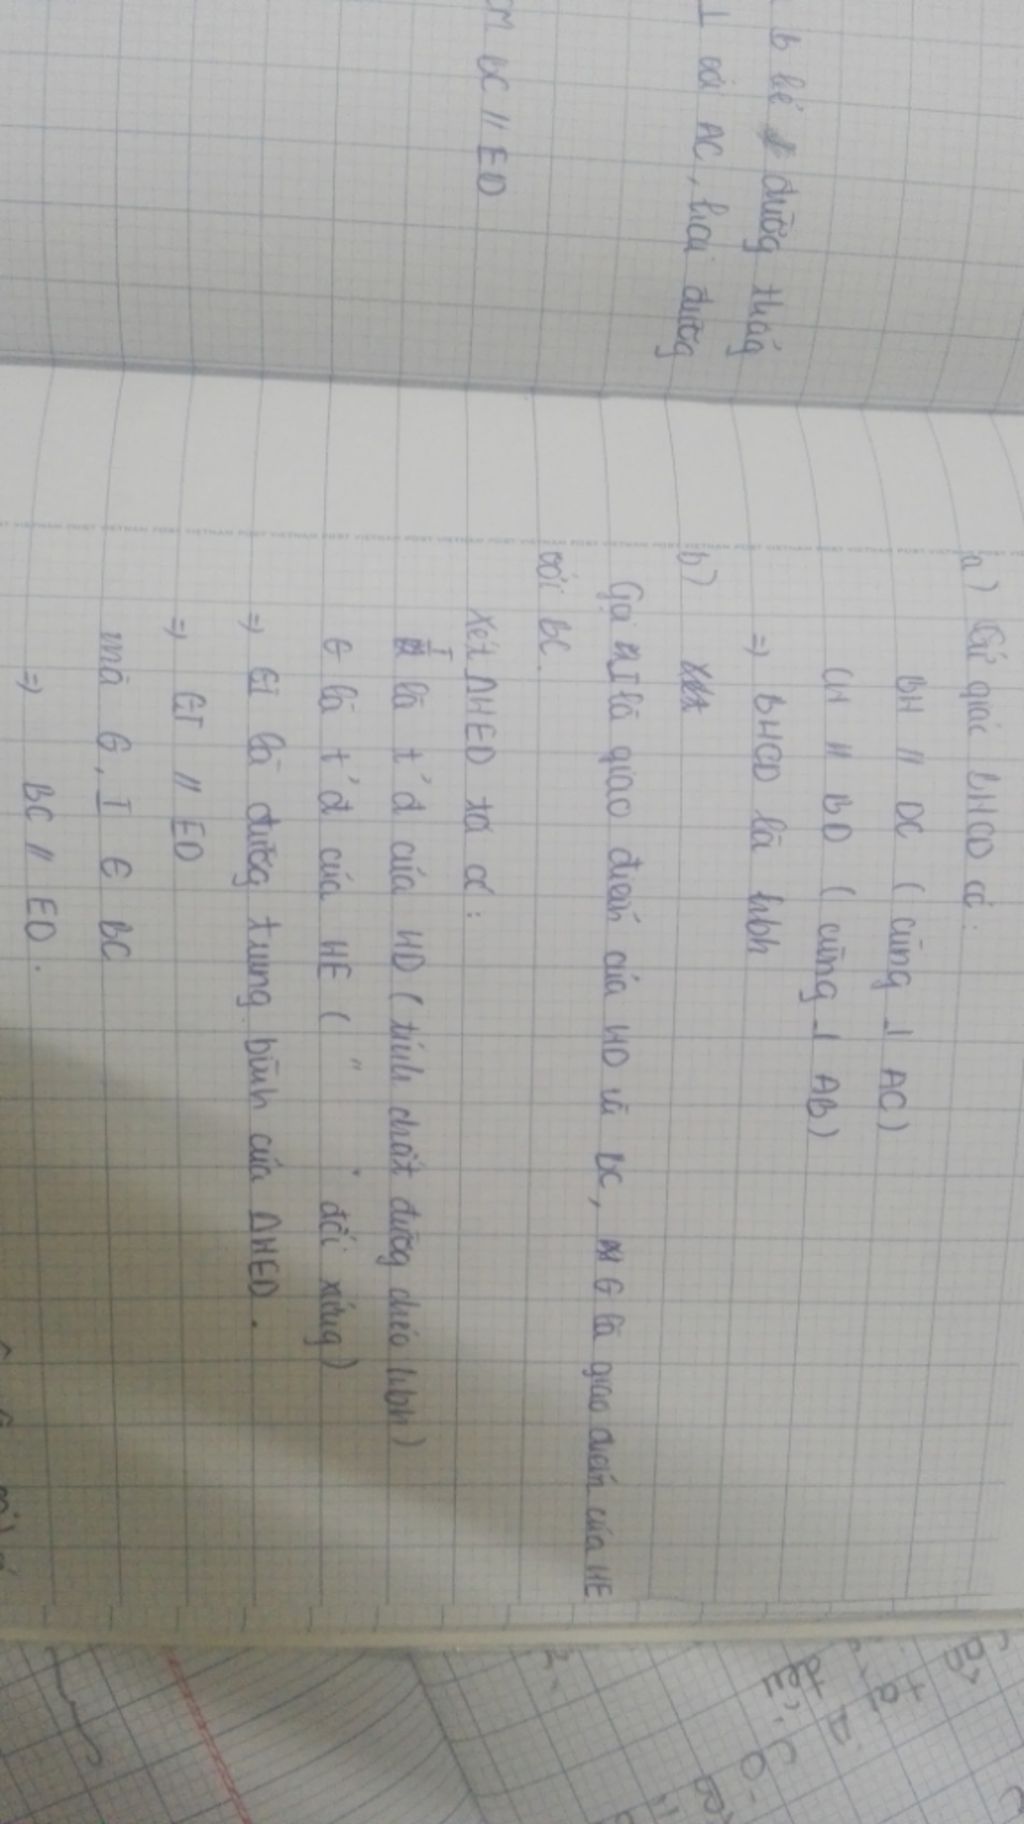 b kẻ đường thẳng
⊥ với AC, hai đường
CM BC // ED
a) Tứ giác BHCD có:
BH // DC ( cùng ⊥ AC)
CH // BD ( cùng ⊥ AB)
=> BHCD là hbh
b)
Gọi I là giao điểm của HD và BC, G là giao điểm của HE
với BC.
Xét ΔHED ta có:
I là t'đ của HD ( tính chất đường chéo hbh)
G là t'đ của HE ( " đối xứng)
=> GI là đường trung bình của ΔHED.
=> GI // ED
mà G, I ∈ BC
=> BC // ED.